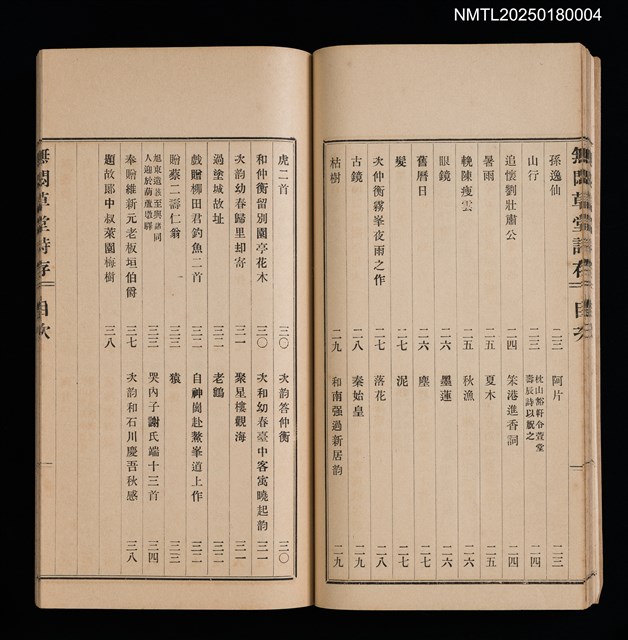 NMTL20250180004
無悶草堂詩存 目次
孫逸仙 二三
山行 二三
追懷劉壯肅公 二四
暑雨 二五
輓陳瘦雲 二六
眼鏡 二六
舊曆日 二六
髮 二七
次仲衡霧峯夜雨之作 二七
古鏡 二八
枯樹 二九
阿片 二三
枕山豁軒令萱堂
壽辰詩以祝之 二四
笨港進香詞 二四
夏木 二五
秋漁 二六
墨蓮 二六
塵 二七
泥 二七
落花 二八
秦始皇 二九
和南强過新居韵 二九
虎二首 三〇
和仲衡留別園亭花木 三〇
次韵幼春歸里却寄 三一
過塗城故址 三二
戲贈柳田君釣魚二首 三二
贈蔡二壽仁翁 三三
旭東遠甚至與諸同
人迎於葫蘆墩驛 三三
奉贈維新元老板垣伯爵 三七
題故耶中叔萊園梅樹 三八
次韵答仲衡 三〇
次和幼春臺中客寓曉起韵 三一
聚星樓觀海 三一
老鶴 三二
自神崗赴鰲峯道上作 三二
猿 三三
哭內子謝氏端十三首 三四
次韵和石川慶吾秋感 三八
無悶草堂詩存 目次